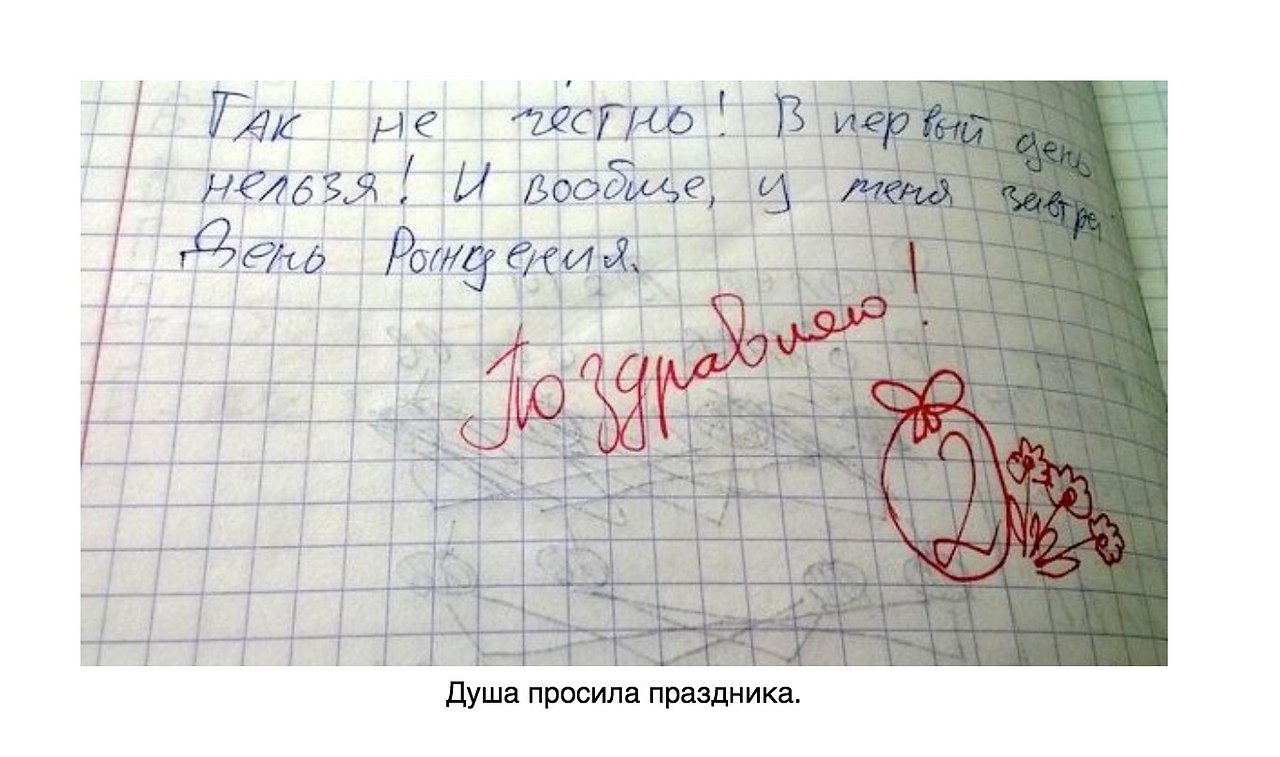 Так не честно! В первый день
нельзя! И вообще, у меня завтра
День Рождения.
Поздравляю!
2
Душа просила праздника.